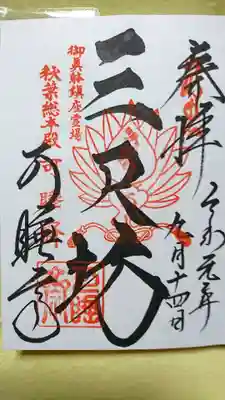 奉拝
令和元年
九月十四日
三尺坊
御真躰鎮座霊場
秋葉総本殿
可睡斎
可睡斎